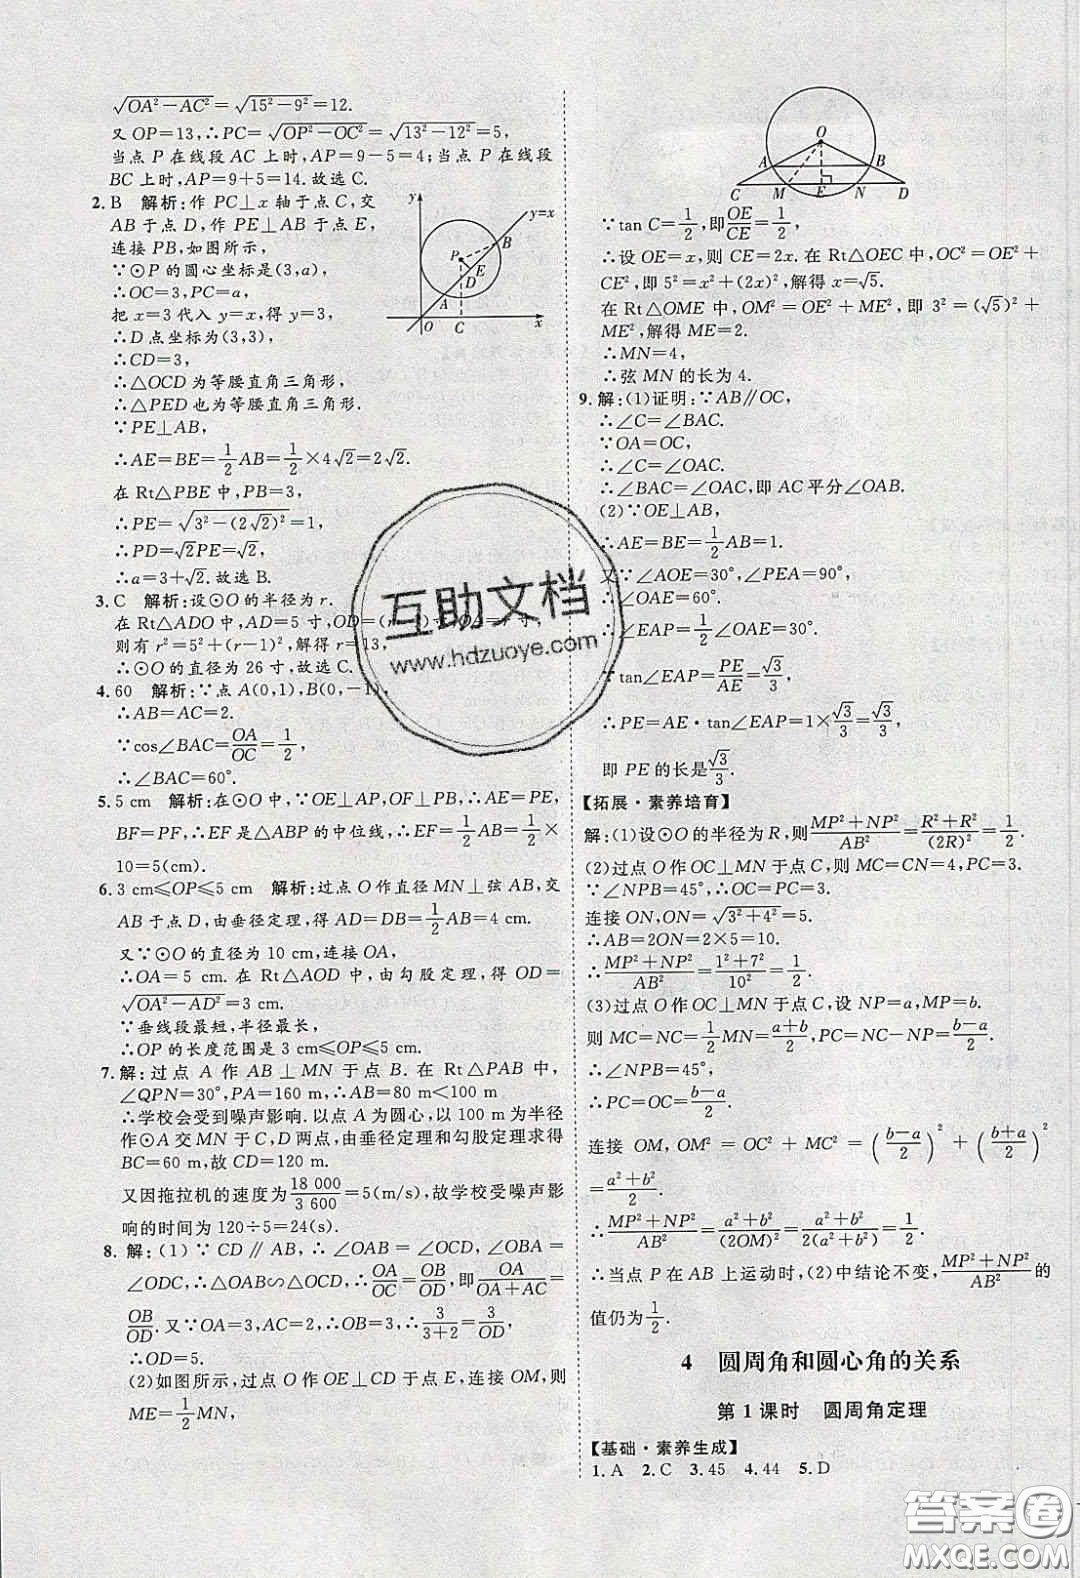 √(OA²−AC²)=√(15²−9²)=12.
又 OP=13,∴PC=√(OP²−OC²)=√(13²−12²)=5,
当点 P 在线段 AC 上时,AP=9−5=4;当点 P 在线段
BC 上时,AP=9+5=14.故选 C.
2.B 解析:作 PC⊥x 轴于点 C,交
AB 于点 D,作 PE⊥AB 于点 E,
连接 PB,如图所示,
∵⊙P 的圆心坐标是(3,a),
∴OC=3,PC=a,
把 x=3 代入 y=x,得 y=3,
∴D 点坐标为(3,3),
∴CD=3,
∴△OCD 为等腰直角三角形,
∴△PED 也为等腰直角三角形.
∵PE⊥AB,
∴AE=BE=1/2AB=1/2×4√2=2√2.
在 Rt△PBE 中,PB=3,
∴PE=√(3²−(2√2)²)=1,
∴PD=√2PE=√2,
∴a=3+√2.故选 B.
y
y=x
P
B
E
D
A
O
C
x
3.C 解析:设⊙O 的半径为 r.
在 Rt△ADO 中,AD=5 寸,OD=(r
则有 r²=5²+(r−1)²,解得 r=13,
∴⊙O 的直径为 26 寸,故选 C.
4.60 解析:∵点 A(0,1),B(0,−1),
∴AB=AC=2.
∵cos∠BAC=OA/OC=1/2,
∴∠BAC=60°.
5.5 cm 解析:在⊙O 中,∵OE⊥AP,OF⊥PB,∴AE=PE,
BF=PF,∴EF 是△ABP 的中位线,∴EF=1/2AB=1/2×
10=5(cm).
6.3 cm≤OP≤5 cm 解析:过点 O 作直径 MN⊥弦 AB,交
AB 于点 D,由垂径定理,得 AD=DB=1/2AB=4 cm.
又∵⊙O 的直径为 10 cm,连接 OA,
∴OA=5 cm.在 Rt△AOD 中,由勾股定理,得 OD=
√(OA²−AD²)=3 cm.
∵垂线段最短,半径最长,
∴OP 的长度范围是 3 cm≤OP≤5 cm.
7.解:过点 A 作 AB⊥MN 于点 B.在 Rt△PAB 中,
∠QPN=30°,PA=160 m,∴AB=80 m<100 m
∴学校会受到噪声影响.以点 A 为圆心,以 100 m 为半径
作⊙A 交 MN 于 C,D 两点,由垂径定理和勾股定理求得
BC=60 m,故 CD=120 m.
又因拖拉机的速度为18 000/3 600=5(m/s),故学校受噪声影
响的时间为 120÷5=24(s).
8.解:(1)∵CD∥AB,∴∠OAB=∠OCD,∠OBA=
∠ODC,∴△OAB∽△OCD,∴OA/OC=OB/OD,即OA/(OA+AC)=
OB/OD.又∵OA=3,AC=2,∴OB=3,∴3/(3+2)=3/OD,
∴OD=5.
(2)如图所示,过点 O 作 OE⊥CD 于点 E,连接 OM,则
ME=1/2MN,
O
A
B
C
M
E
N
D
∵tan C=1/2,即OE/CE=1/2,
∴设 OE=x,则 CE=2x.在 Rt△OEC 中,OC²=OE²+
CE²,即 5²=x²+(2x)²,解得 x=√5.
在 Rt△OME 中,OM²=OE²+ME²,即 3²=(√5)²+
ME²,解得 ME=2.
∴MN=4,
∴弦 MN 的长为 4.
9.解:(1)证明:∵AB∥OC,
∴∠C=∠BAC.
∵OA=OC,
∴∠C=∠OAC.
∴∠BAC=∠OAC,即 AC 平分∠OAB.
(2)∵OE⊥AB,
∴AE=BE=1/2AB=1.
又∵∠AOE=30°,∠PEA=90°,
∴∠OAE=60°.
∴∠EAP=1/2∠OAE=30°.
∵tan∠EAP=PE/AE=√3/3,
∴PE=AE·tan∠EAP=1×√3/3=√3/3,
即 PE 的长是√3/3.
【拓展·素养培育】
解:(1)设⊙O 的半径为 R,则(MP²+NP²)/AB²=(R²+R²)/(2R)²=1/2.
(2)过点 O 作 OC⊥MN 于点 C,则 MC=CN=4,PC=3.
∵∠NPB=45°,∴OC=PC=3.
连接 ON,ON=√(3²+4²)=5.
∴AB=2ON=2×5=10.
∴(MP²+NP²)/AB²=(1²+7²)/10²=1/2.
(3)过点 O 作 OC⊥MN 于点 C,设 NP=a,MP=b.
则 MC=NC=1/2MN=(a+b)/2,PC=NC−NP=(b−a)/2.
∵∠NPB=45°,
∴PC=OC=(b−a)/2.
连接 OM,OM²=OC²+MC²=((b−a)/2)²+((b+a)/2)²
=(a²+b²)/2.
∴(MP²+NP²)/AB²=(a²+b²)/(2OM)²=(a²+b²)/(2(a²+b²))=1/2.
∴当点 P 在 AB 上运动时,(2)中结论不变,(MP²+NP²)/AB²的
值仍为1/2.
4 圆周角和圆心角的关系
第 1 课时 圆周角定理
【基础·素养生成】
1.A 2.C 3.45 4.44 5.D
互助文档
www.hdzuoye.com
答案圈
MXQE.COM